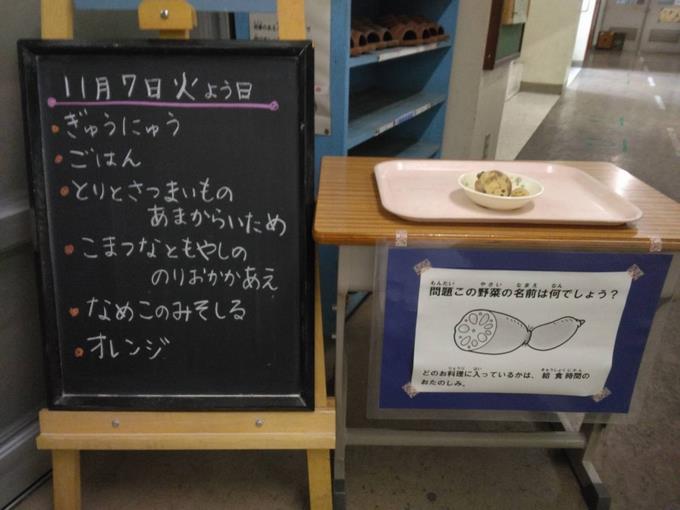 11月7日火よう日
・ぎゅうにゅう
・ごはん
・とりとさつまいもの
あまからいため
・こまつなともやしの
のりおかかあえ
・なめこのみそしる
・オレンジ
もんだい やさい なまえ なん
問題この野菜の名前は何でしょう?
りょうり はい きゅうしょくじかん
どのお料理に入っているかは、給食時間の
おたのしみ。